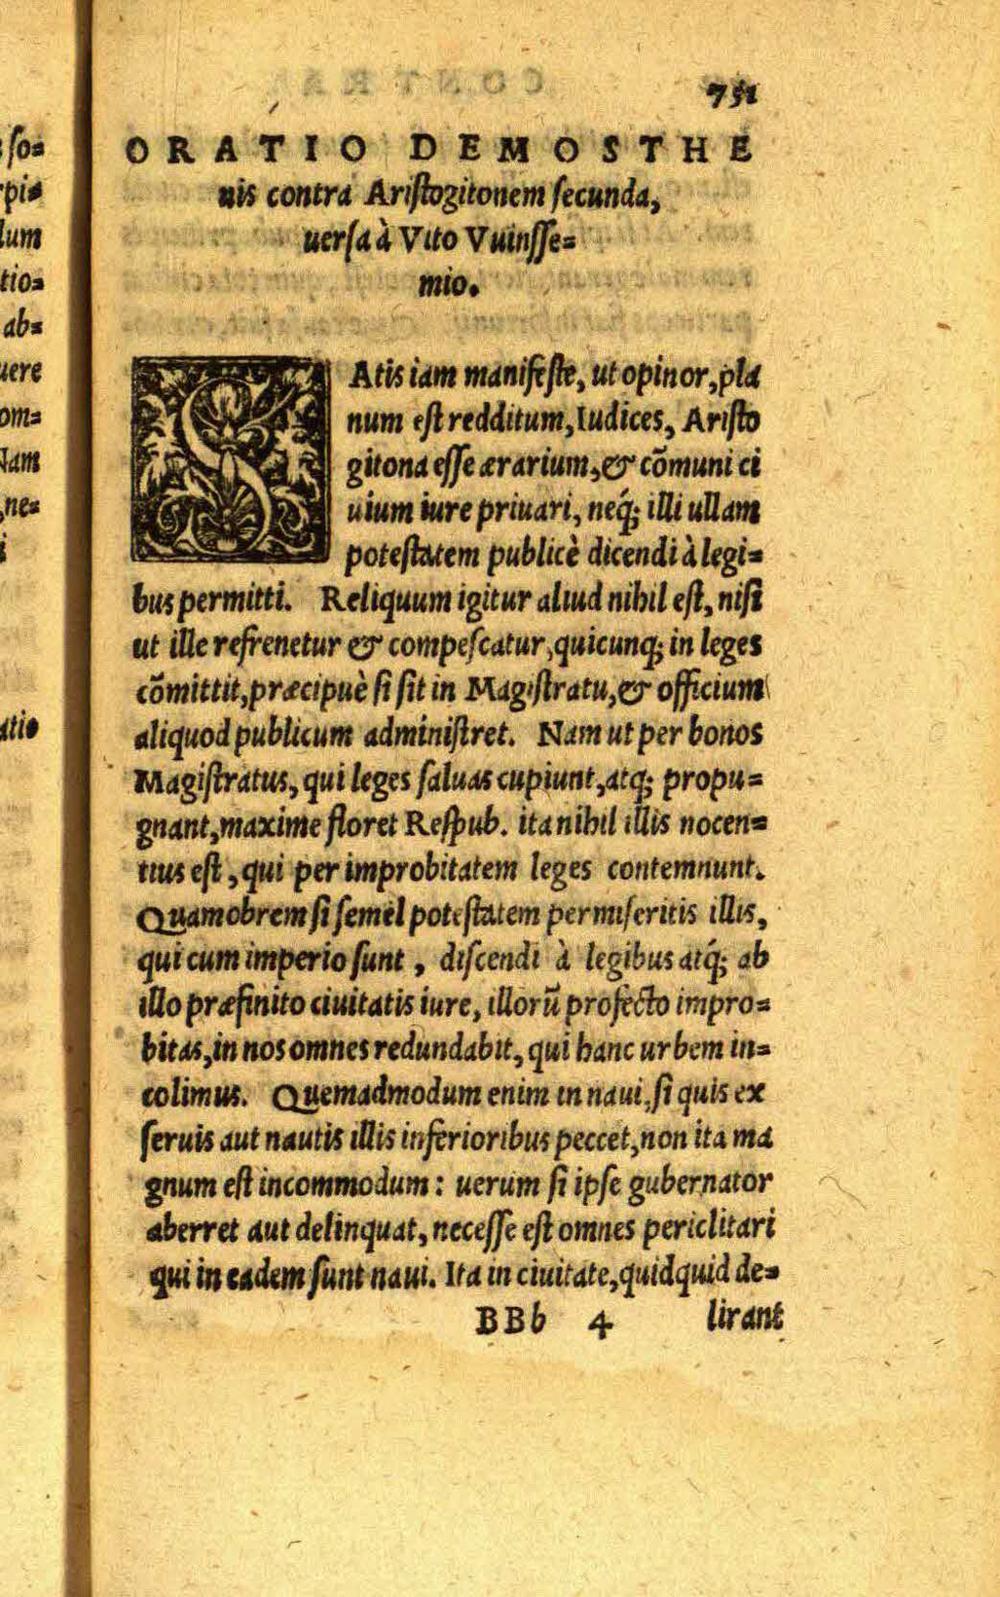 751
ORATIO DEMOSTHE
nis contra Aristogitonem secunda,
uersa à Vito Vuinsse=
mio.
SAtis iam manifeste, ut opinor, pla
num est redditum, Iudices, Aristo
gitona esse ærarium, & cõmuni ci
uium iure priuari, neq́; illi ullam
potestatem publicè dicendi à legi=
bus permitti. Reliquum igitur aliud nihil est, nisi
ut ille refrenetur & compescatur, quicunq; in leges
cõmittit, præcipuè si sit in Magistratu, & officium
aliquod publicum administret. Nam ut per bonos
Magistratus, qui leges saluas cupiunt, atq; propu=
gnant, maxime floret Respub. ita nihil illis nocen=
tius est, qui per improbitatem leges contemnunt.
Quamobrem si semel potestatem permiseritis illis,
qui cum imperio sunt, discendi à legibus atq́; ab
illo præfinito ciuitatis iure, illorũ profecto impro=
bitas, in nos omnes redundabit, qui hanc urbem in=
colimus. Quemadmodum enim in naui, si quis ex
seruis aut nautis illis inferioribus peccet, non ita ma
gnum est incommodum: uerum si ipse gubernator
aberret aut delinquat, necesse est omnes periclitari
qui in eadem sunt naui. Ita in ciuitate, quidquid de=
BBb 4 lirant
so=
pia
lum
tio=
ab=
uere
om=
Nam
,ne=
i
atio